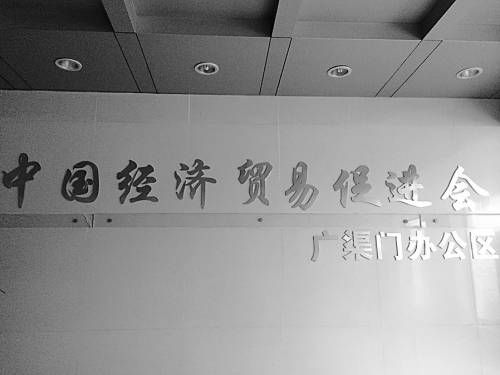 中国经济贸易促进会
广渠门办公区